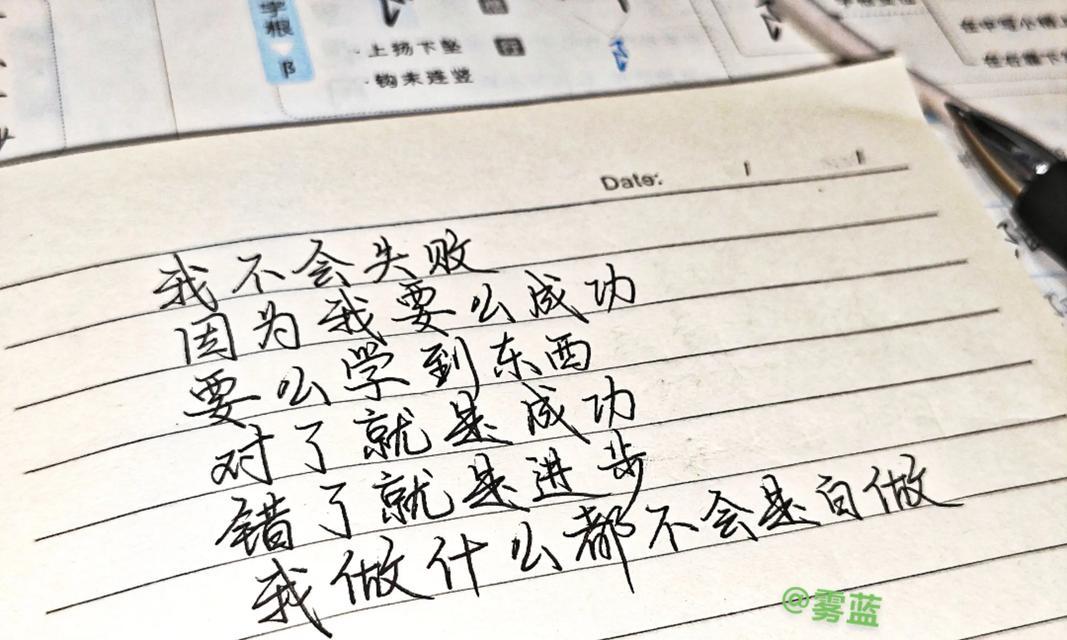 字根
阝
·上扬下坠
·钩末连竖
Date:
我不会失败
因为我要么成功
要么学到东西
对了就是成功
错了就是进步
我做什么都不会是白做
@雾蓝